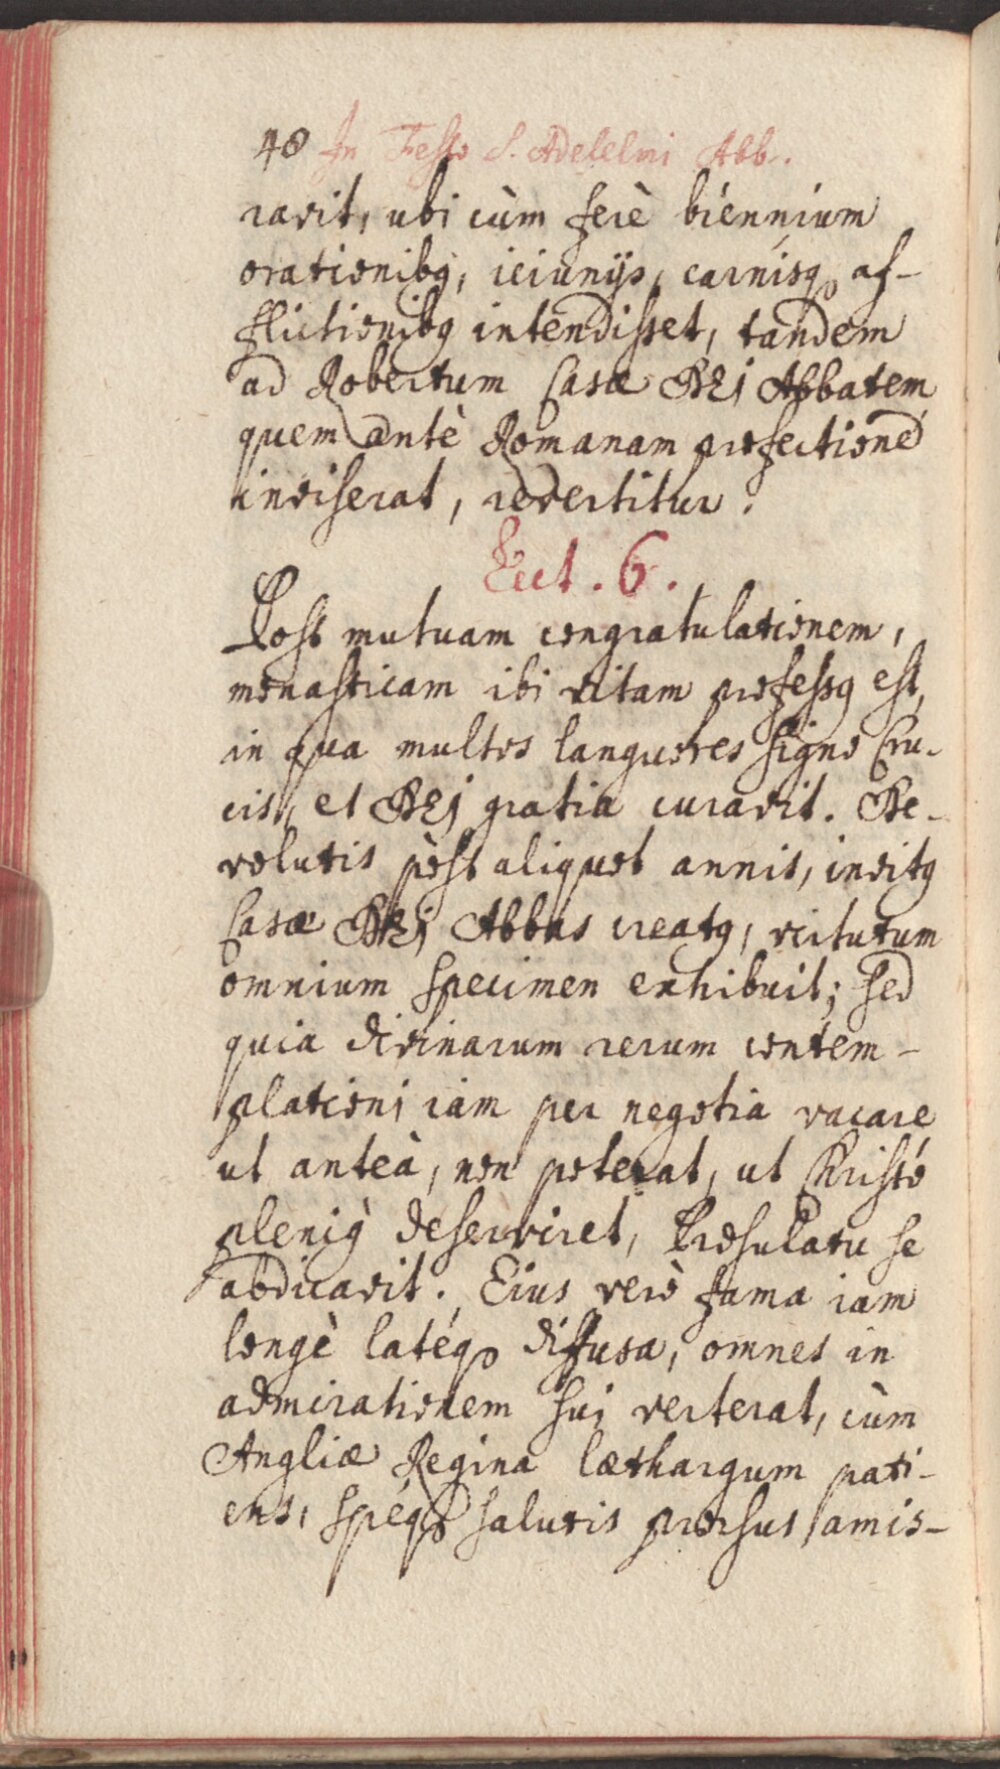 48 In Festo S. Adelelmi Abb.
ravit, ubi cùm ferè biennium
orationibq, ieiunijs, carnisq, af-
flictionibq intendisset, tandem
ad Robertum Casæ DEI Abbatem
quem antè Romanam profectionē
inviserat, revertitur.
Lect. 6.
Post mutuam congratulationem,
monasticam ibi vitam professq est,
in qua multos languores signo Cru-
cis, et DEI gratia curavit. De-
volutis pòst aliquot annis, invitq
Casæ DEI Abbas creatq, virtutum
omnium specimen exhibuit; sed
quia divinarum rerum contem-
plationi iam per negotia vacare
ut anteà, non poterat, ut Christo
pleniq deserviret, Præsulatu se
abdicavit. Eius verò fama iam
longè latéq, diffusa, omnes in
admirationem sui verterat, cùm
Angliæ Regina læthargum pati-
ens, spéq, salutis prorsus amis-